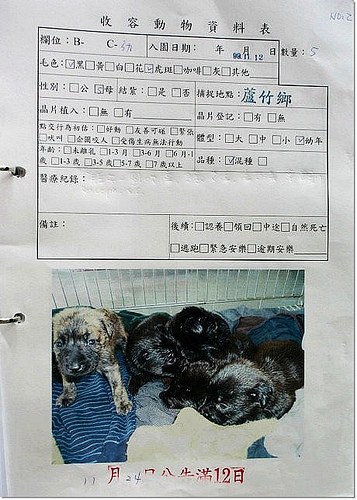 NO:2
收容動物資料表
欄位：B- C-幼 入園日期： 年 月 日 數量：5
99.11.12
毛色：☑黑□黃□白□花☑虎斑□咖啡□灰□其他
性別：□公☑母 結紮：□是□否 捕捉地點：蘆竹鄉
晶片植入：□無□有 晶片登記：□有□無
點交行為初估：□好動□友善可碰□緊張
□吠叫□企圖咬人□受傷生病無法行動
體型：□大□中□小☑幼年
年齡：□未離乳□1-3月□3-6月□6月-1
歲□1-3歲□3-5歲□5-7歲□7歲以上
品種：☑混種□
醫療紀錄：
備註： 後續：□認養□領回□中途□自然死亡
□逃跑□緊急安樂□逾期安樂
11月24日公告滿12日